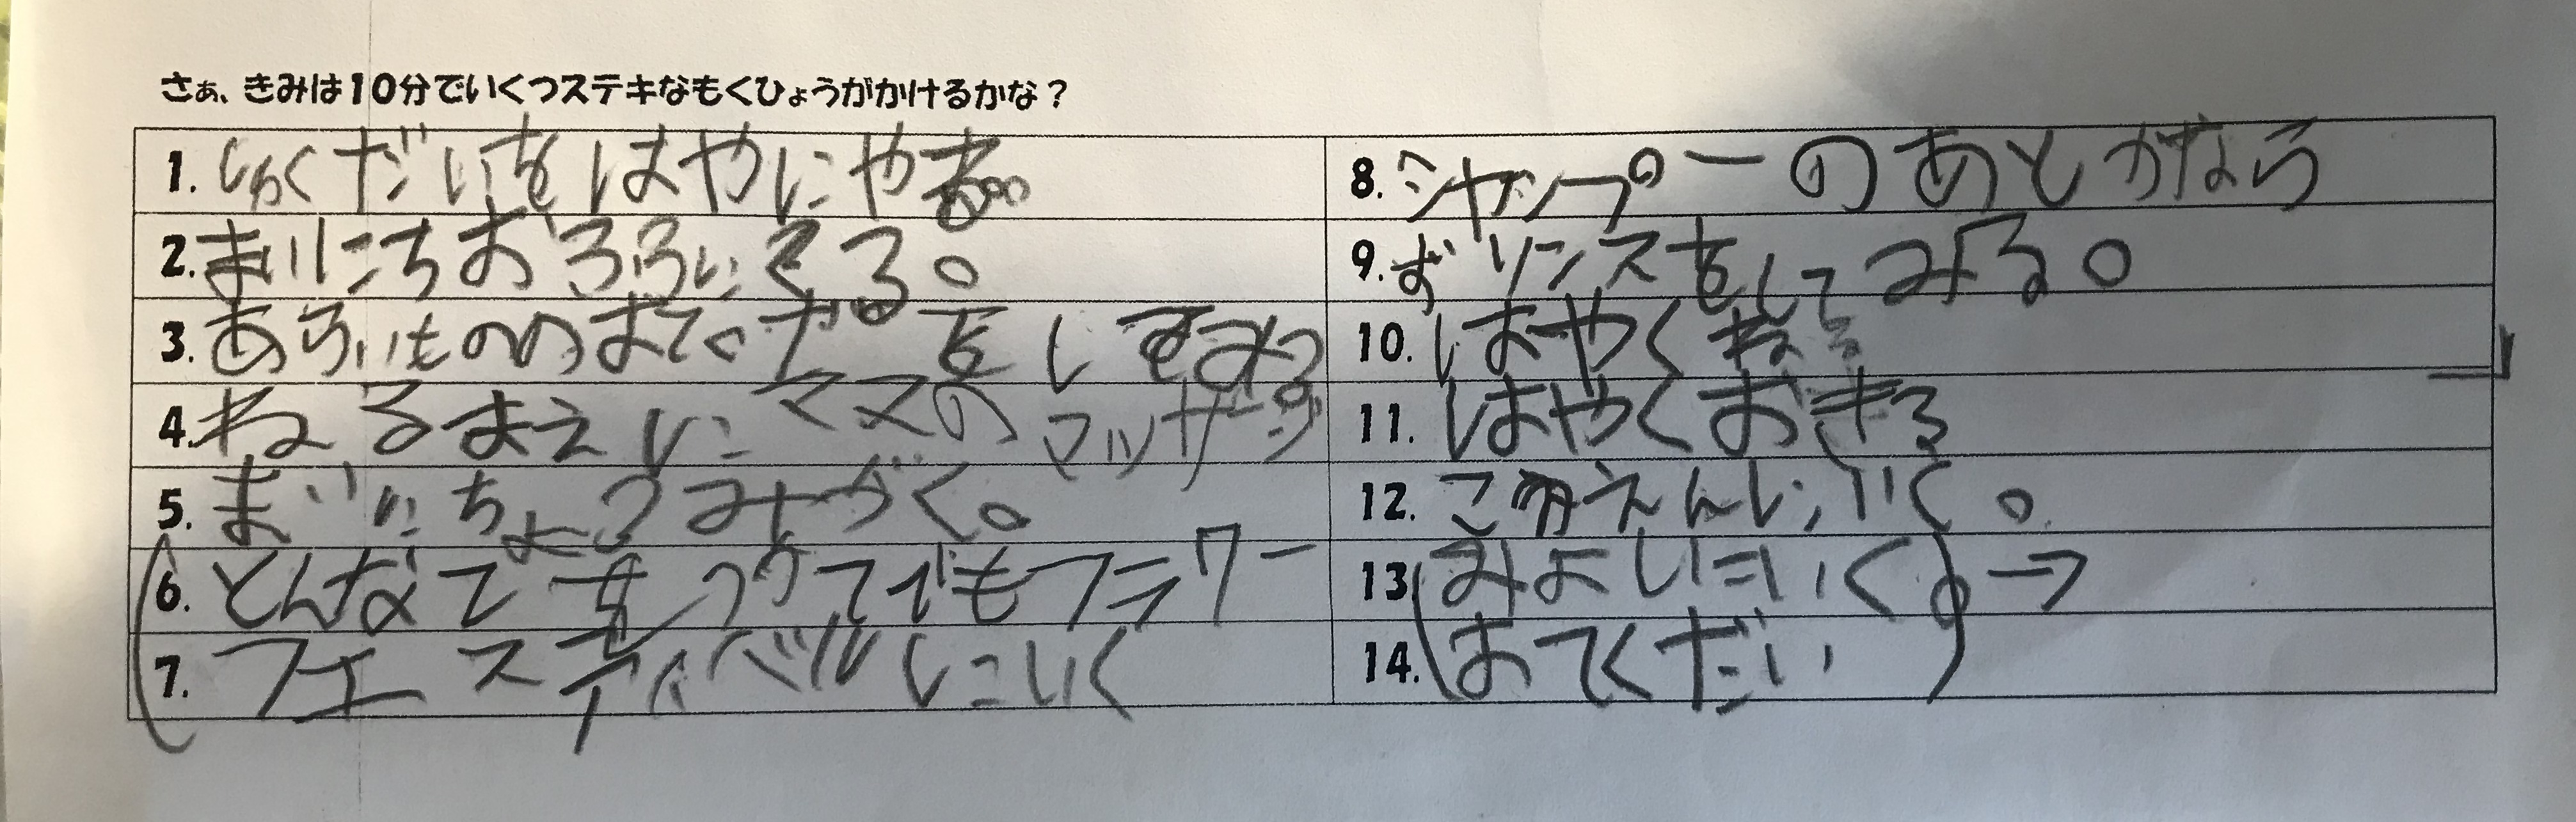 さぁ、きみは10分でいくつステキなもくひょうがかけるかな？
1. しゅくだいをはやにやる。
2. まいにちおふろにくる。
3. あらいもののおてをします
4. ねるまえにママのマッサージ
5. まいにちよつみがく。
6. どんなでもフラワー
7. フェスティバルにいく
8. シャンプーのあとかなら
9. ずリンスをしてみる。
10. はやくねる
11. はやくおきる
12. こうえんにいく。
13. みよいにいく →
14. おてくだい